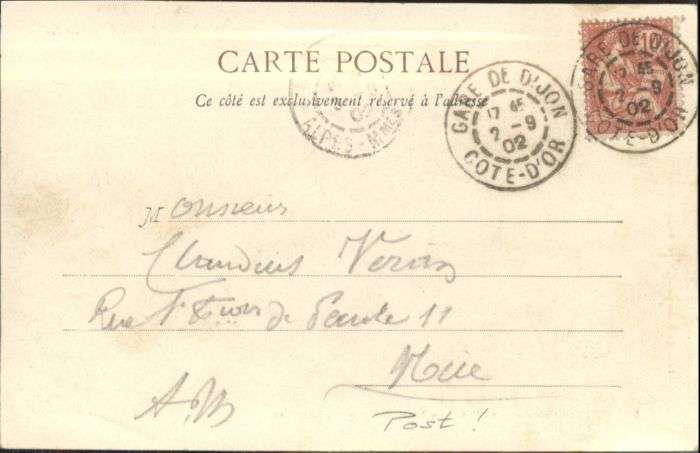 CARTE POSTALE
Ce côté est exclusivement réservé à l'adresse
GARE DE DIJON
17 45
2 - 9
02
COTE-D'OR
10
GARE DE DIJON
2 - 9
02
COTE-D'OR
02
ALPES-Mmes
Monsieur
Claudius
Rue de 11
Nice
A. M
Post !